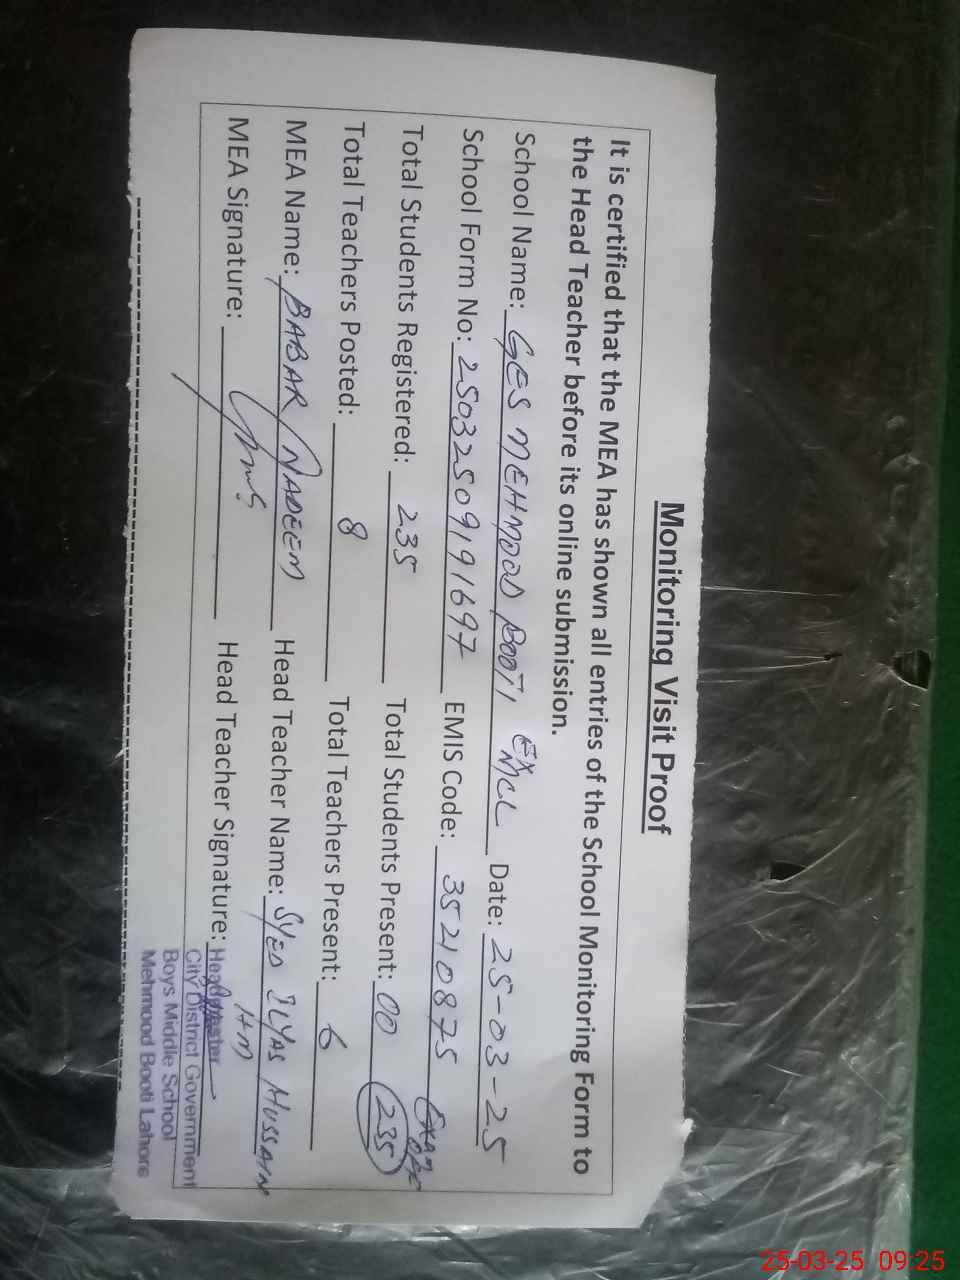 Monitoring Visit Proof
It is certified that the MEA has shown all entries of the School Monitoring Form to
the Head Teacher before its online submission.
School Name: GES MEHMOOD BOOTI EMCL Date: 25-03-25
School Form No: 25032509191697 EMIS Code: 35210875
Total Students Registered: 235 Total Students Present: 00 235
Total Teachers Posted: 8 Total Teachers Present: 6
MEA Name: BABAR NADEEM Head Teacher Name: SYED ILYAS HUSSAIN
MEA Signature: Head Teacher Signature: HM
Headmaster
City District Government
Boys Middle School
Mehmood Booti Lahore
25-03-25 09:25